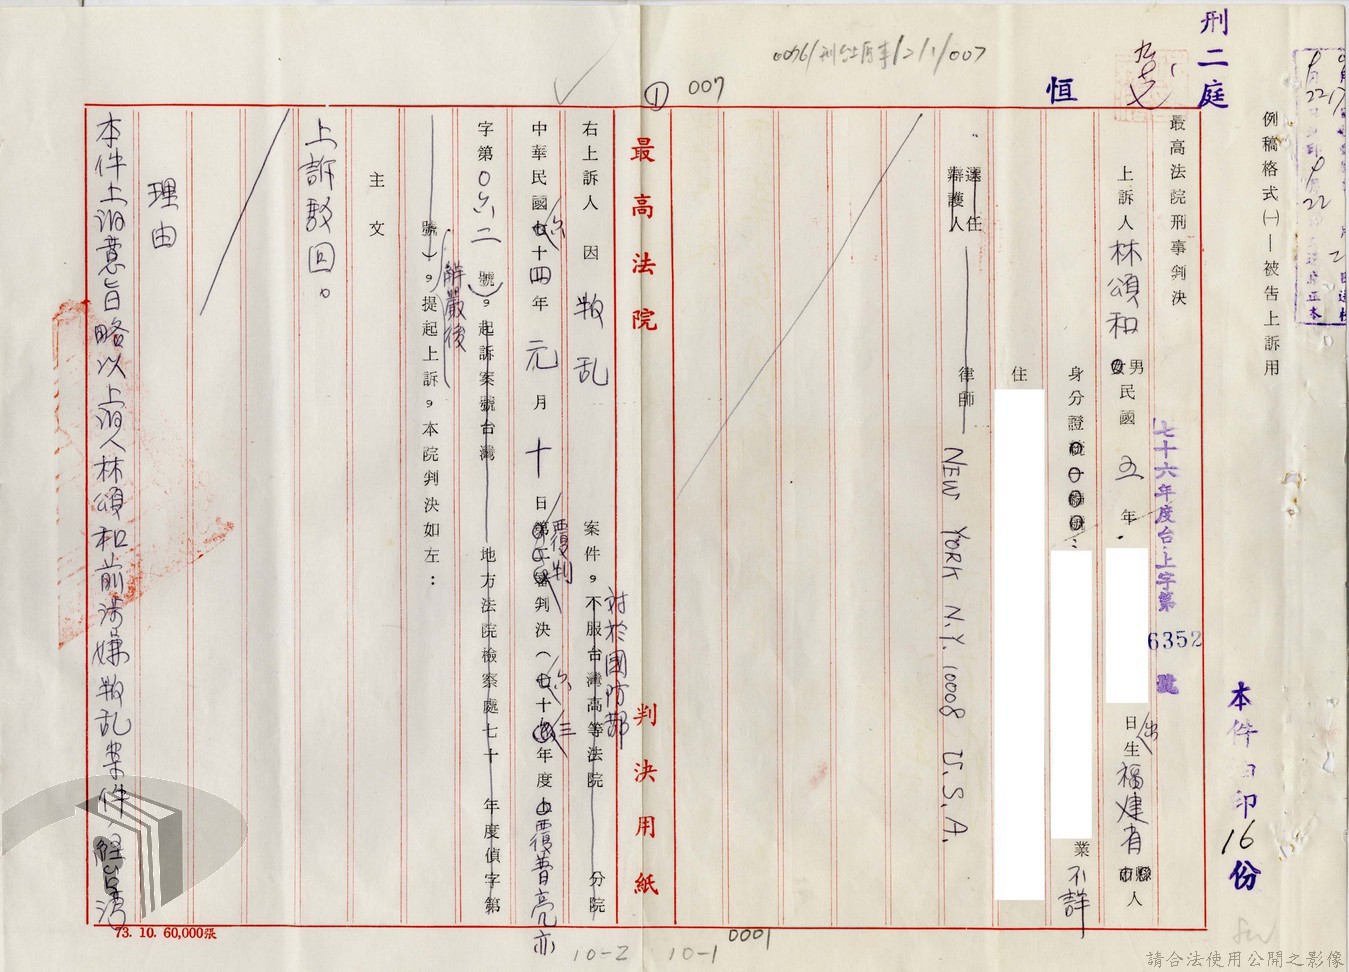 刑二庭
恒
0096/刑台上厚事/2/1/007
① 007
例稿格式㈠—被告上訴用
最高法院刑事判決
七十六年度台上字第6352號
本件印16份
上訴人 林頌和 男女 民國五年 日出生 福建省縣市人
身分證 業不詳
住
NEW YORK N.Y. 10008 U.S.A.
選任辯護人 律師
最高法院 判決用紙
右上訴人因 叛乱 案件,不服台灣高等法院 分院
對於國防部
中華民國六十四年元月十日覆判判決(六十三年度覆普亮亦
字第0六二號),起訴案號台灣 地方法院檢察處七十 年度偵字第
號),解嚴後提起上訴,本院判決如左:
主文
上訴駁回。
理由
本件上訴意旨略以上訴人林頌和前涉嫌叛乱案件,經台灣
73. 10. 60,000張
10-2 10-1
0001
請合法使用公開之影像